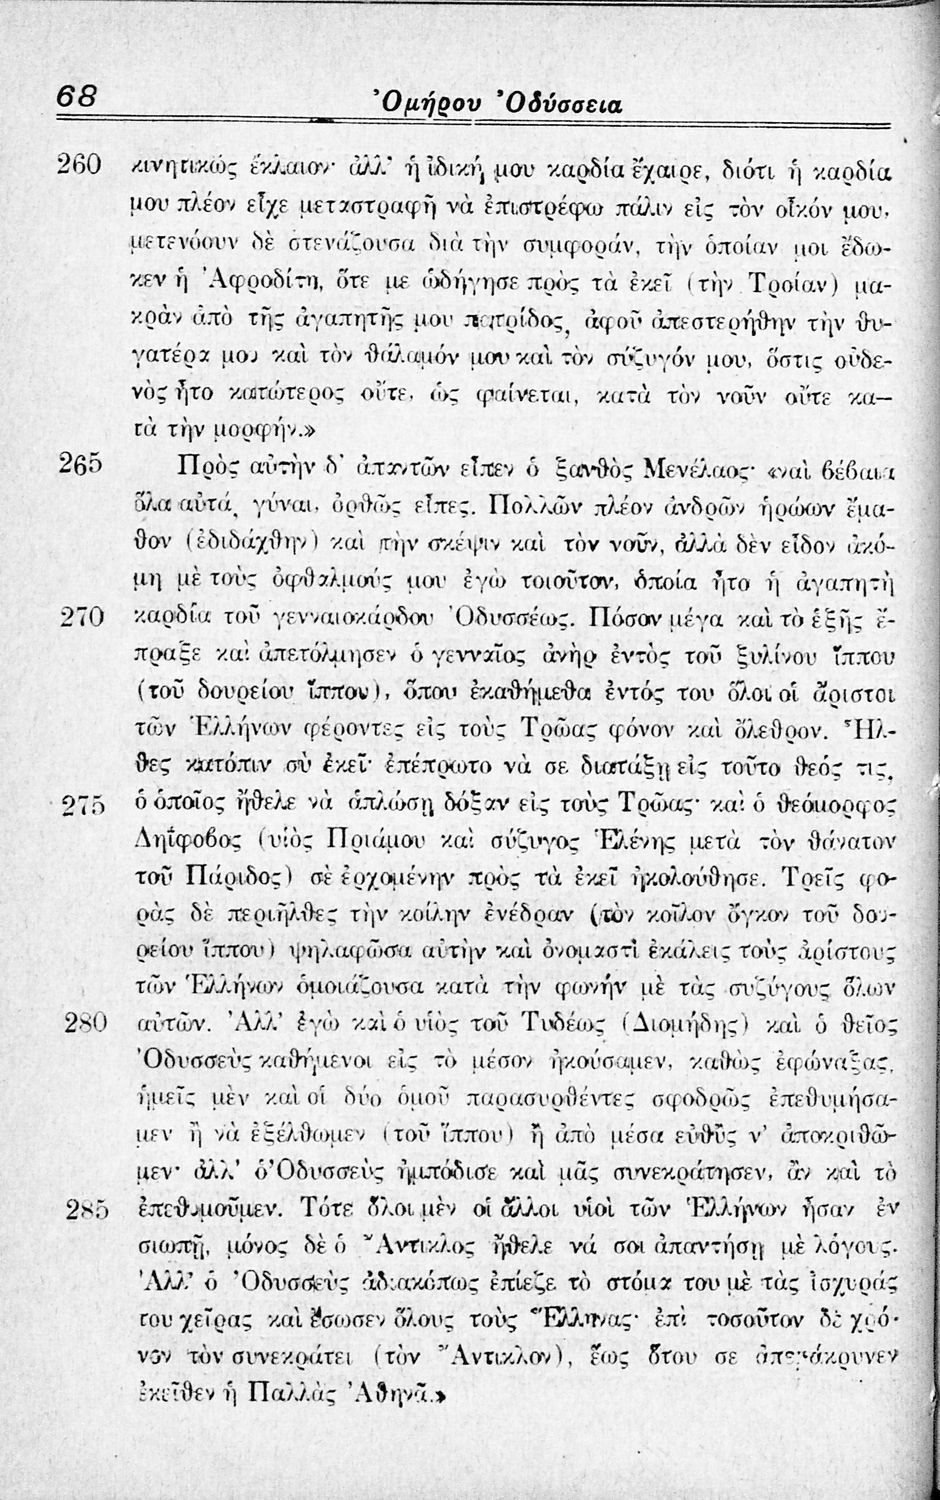 68 Ὁμήρου Ὀδύσσεια
260 κινητικῶς ἔκλαιον· ἀλλ’ ἡ ἰδική μου καρδία ἔχαιρε, διότι ἡ καρδία
μου πλέον εἶχε μεταστραφῆ νὰ ἐπιστρέφω πάλιν εἰς τὸν οἶκόν μου,
μετενόουν δὲ στενάζουσα διὰ τὴν συμφοράν, τὴν ὁποίαν μοι ἔδω-
κεν ἡ Ἀφροδίτη, ὅτε με ὡδήγησε πρὸς τὰ ἐκεῖ (τὴν Τροίαν) μα-
κρὰν ἀπὸ τῆς ἀγαπητῆς μου πατρίδος, ἀφοῦ ἀπεστερήθην τὴν θυ-
γατέρα μου καὶ τὸν θάλαμόν μου καὶ τὸν σύζυγόν μου, ὅστις οὐδε-
νὸς ἦτο κατώτερος οὔτε, ὡς φαίνεται, κατὰ τὸν νοῦν οὔτε κα—
τὰ τὴν μορφήν.»
265 Πρὸς αὐτὴν δ’ ἀπαντῶν εἶπεν ὁ ξανθὸς Μενέλαος· «ναὶ βέβαια
ὅλα αὐτά, γύναι, ὀρθῶς εἶπες. Πολλῶν πλέον ἀνδρῶν ἡρώων ἔμα-
θον (ἐδιδάχθην) καὶ τὴν σκέψιν καὶ τὸν νοῦν, ἀλλὰ δὲν εἶδον ἀκό-
μη μὲ τοὺς ὀφθαλμούς μου ἐγὼ τοιοῦτον, ὁποία ἦτο ἡ ἀγαπητὴ
270 καρδία τοῦ γενναιοκάρδου Ὀδυσσέως. Πόσον μέγα καὶ τὸ ἑξῆς ἔ-
πραξε καὶ ἀπετόλμησεν ὁ γενναῖος ἀνὴρ ἐντὸς τοῦ ξυλίνου ἵππου
(τοῦ δουρείου ἵππου), ὅπου ἐκαθήμεθα ἐντός του ὅλοι οἱ ἄριστοι
τῶν Ἑλλήνων φέροντες εἰς τοὺς Τρῶας φόνον καὶ ὄλεθρον. Ἦλ-
θες κατόπιν σὺ ἐκεῖ· ἐπέπρωτο νὰ σε διατάξῃ εἰς τοῦτο θεός τις,
275 ὁ ὁποῖος ἤθελε νὰ ἁπλώσῃ δόξαν εἰς τοὺς Τρῶας· καὶ ὁ θεόμορφος
Δηΐφοβος (υἱὸς Πριάμου καὶ σύζυγος Ἑλένης μετὰ τὸν θάνατον
τοῦ Πάριδος) σὲ ἐρχομένην πρὸς τὰ ἐκεῖ ἠκολούθησε. Τρεῖς φο-
ρὰς δὲ περιῆλθες τὴν κοίλην ἐνέδραν (τὸν κοῖλον ὄγκον τοῦ δου-
ρείου ἵππου) ψηλαφῶσα αὐτὴν καὶ ὀνομαστὶ ἐκάλεις τοὺς ἀρίστους
τῶν Ἑλλήνων ὁμοιάζουσα κατὰ τὴν φωνήν μὲ τὰς συζύγους ὅλων
280 αὐτῶν. Ἀλλ’ ἐγὼ καὶ ὁ υἱὸς τοῦ Τυδέως (Διομήδης) καὶ ὁ θεῖος
Ὀδυσσεὺς καθήμενοι εἰς τὸ μέσον ἠκούσαμεν, καθὼς ἐφώναξας,
ἡμεῖς μὲν καὶ οἱ δύο ὁμοῦ παρασυρθέντες σφοδρῶς ἐπεθυμήσα-
μεν ἢ νὰ ἐξέλθωμεν (τοῦ ἵππου) ἢ ἀπὸ μέσα εὐθὺς ν’ ἀποκριθῶ-
μεν· ἀλλ’ ὁ Ὀδυσσεὺς ἠμπόδισε καὶ μᾶς συνεκράτησεν, ἂν καὶ τὸ
285 ἐπεθυμοῦμεν. Τότε ὅλοι μὲν οἱ ἄλλοι υἱοὶ τῶν Ἑλλήνων ἦσαν ἐν
σιωπῇ, μόνος δὲ ὁ Ἄντικλος ἤθελε νά σοι ἀπαντήσῃ μὲ λόγους.
Ἀλλ’ ὁ Ὀδυσσεὺς ἀδιακόπως ἐπίεζε τὸ στόμα του μὲ τὰς ἰσχυράς
του χεῖρας καὶ ἔσωσεν ὅλους τοὺς Ἕλληνας· ἐπὶ τοσοῦτον δὲ χρό-
νον τὸν συνεκράτει (τὸν Ἄντικλον), ἕως ὅτου σε ἀπεμάκρυνεν
ἐκεῖθεν ἡ Παλλὰς Ἀθηνᾶ.»